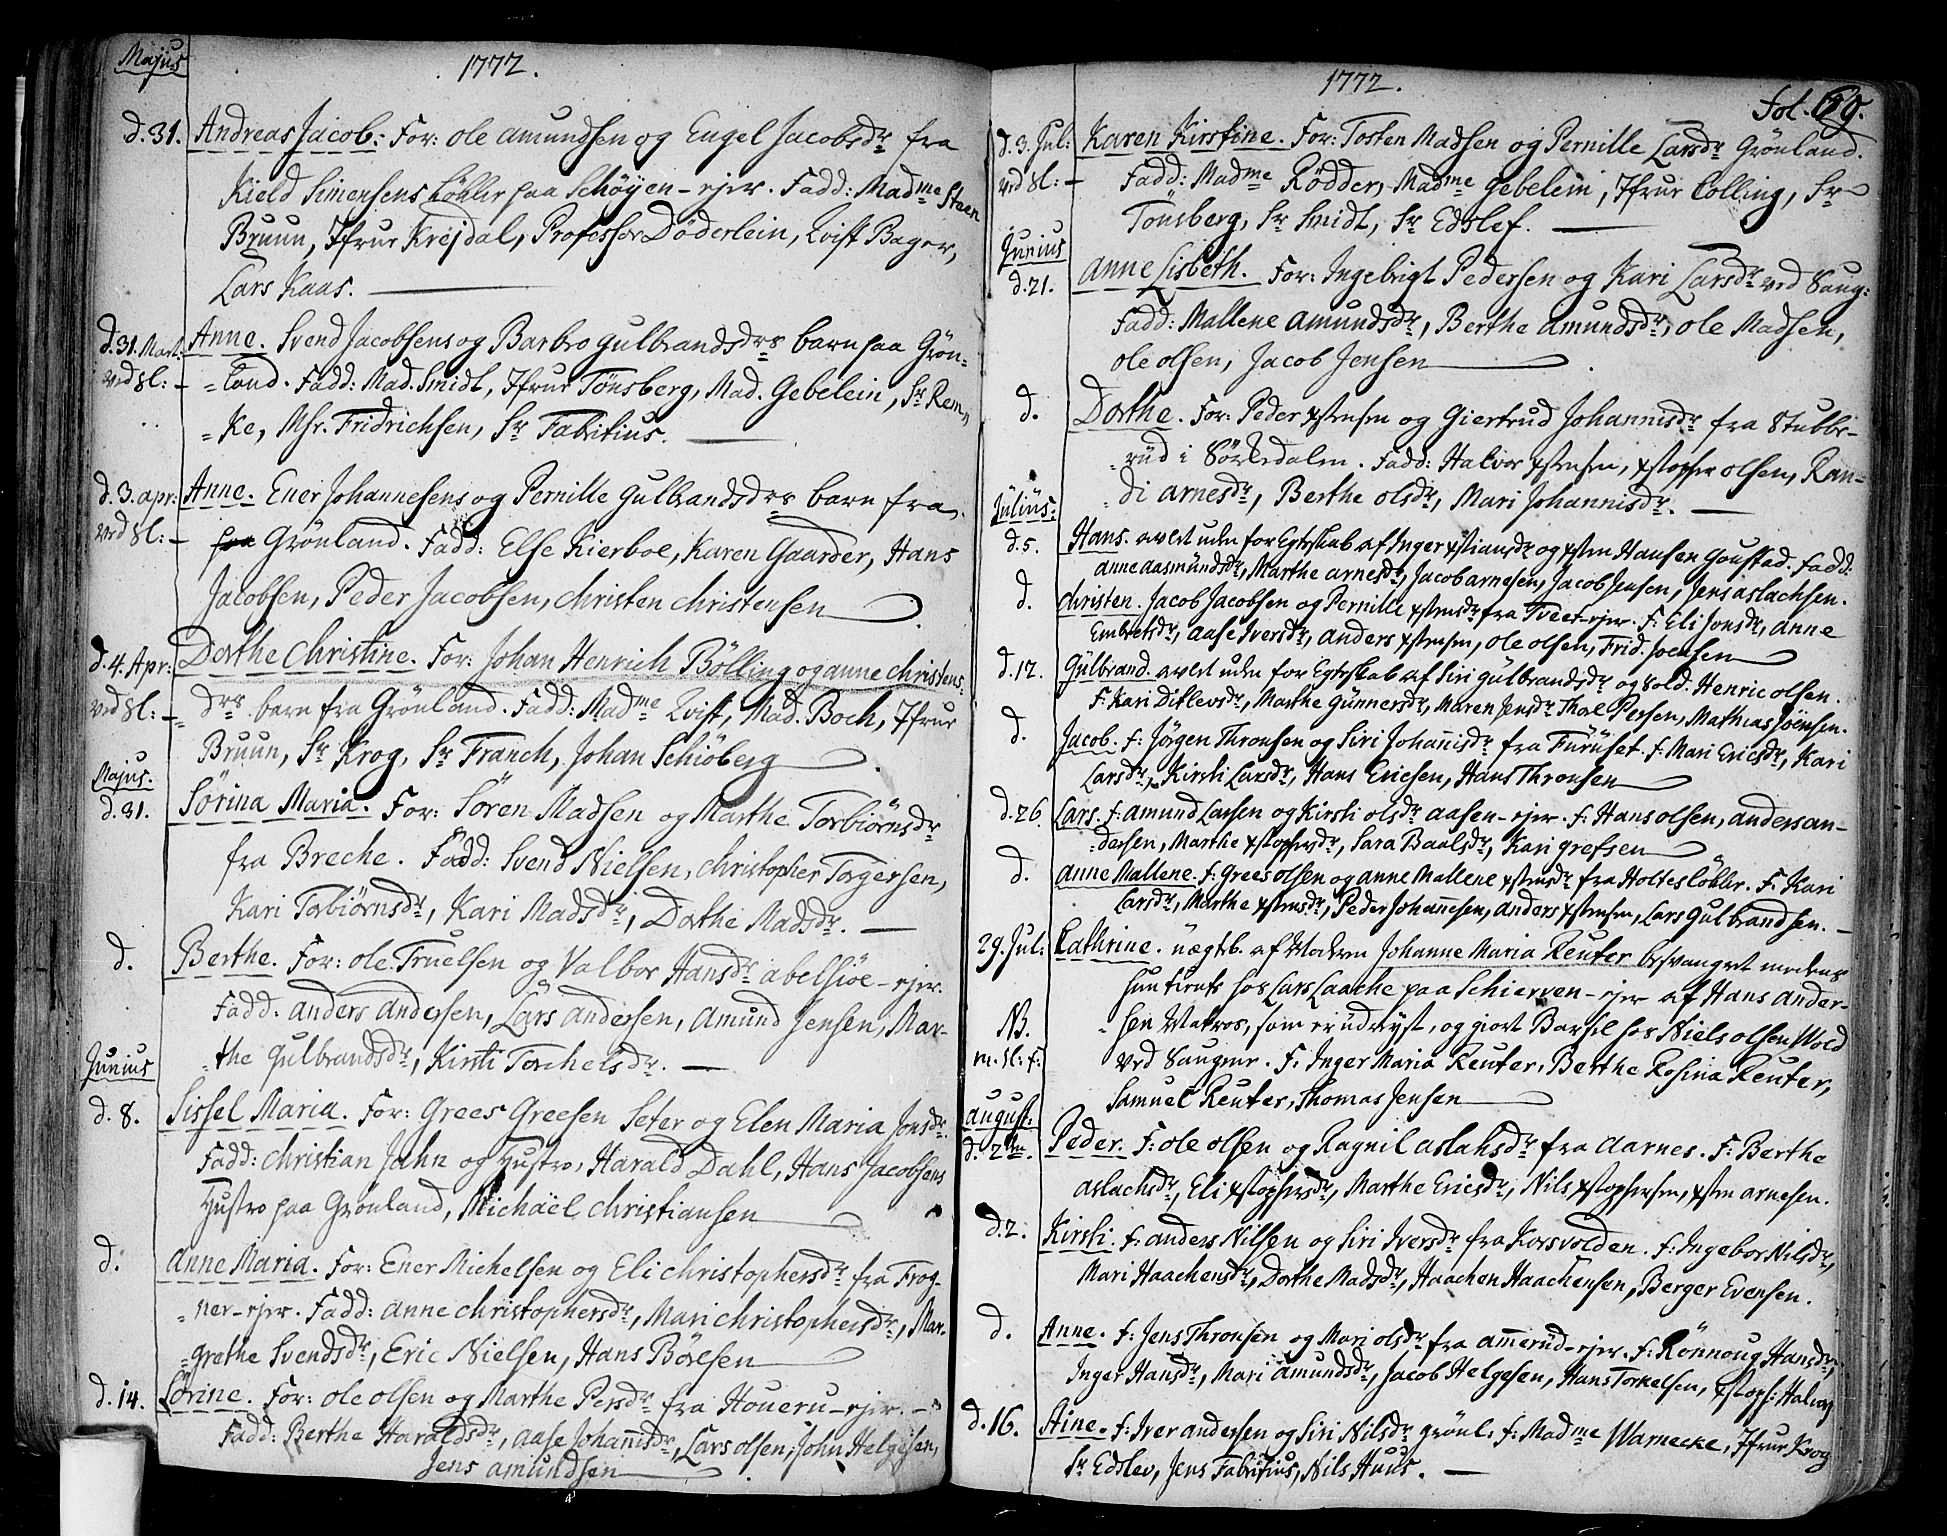 Majus
1772.
d. 31. Andreas Jacob: For: Ole Amundsen og Engel Jacobsdr fra
Kield Simensens Løkke paa Schøyen-ejer. Fadd: Madme Steen
Bruun, Jfrur Krejdal, Professor Döderlein, Qvist Bager,
Lars Kaas.
d. 31. Mart: Anne. Svend Jacobsens og Barbro Gulbrandsdrs barn paa Grön-
ved Sl: - land. Fadd: Mad. Smidt, Jfrur Tönsberg, Mad. Gebelein, Sr Rem-
ke, Msr. Fridrichsen, Sr Fabritius.
d. 3. apr: Anne. Ener Johannesens og Pernille Gulbrandsdrs barn fra
ved Sl: - paa Grönland. Fadd: Else Kierboe, Karen Gaarder, Hans
Jacobsen, Peder Jacobsen, Christen Christensen
d. 4. Apr: Dorthe Christine. For: Johan Henrich Bölling og Anne Christens
ved Sl: - drs barn fra Grönland. Fadd: Madme Qvist, Mad. Boch, Jfrur
Bruun, Sr Krog, Sr Franch, Johan Schiöberg
Majus.
d. 31. Sörina Maria. For: Sören Madsen og Marthe Torbiörnsdr
fra Breche. Fadd: Svend Nielsen, Christopher Torgersen,
Kari Torbiörnsdr, Kari Madsdr, Dorthe Madsdr.
d. Berthe. For: Ole Truelsen og Valbor Hansdr Abelsiöe-ejer.
Fadd. Anders Andersen, Lars Andersen, Amund Jensen, Mar-
the Gulbrandsdr, Kirsti Torchelsdr.
Junius
d. 8. Sissel Maria. For: Grees Greesen Seter og Elen Maria Jonsdr.
Fadd: Christian Jahn og Hustro, Harald Dahl, Hans Jacobsens
Hustro paa Grönland, Michaël Christiansen
d. Anne Maria. For: Ener Michelsen og Eli Christophersdr fra Frog-
ner-ejer. Fadd: Anne Christophersdr, Mari Christophersdr, Mar-
grethe Svendsdr, Eric Nielsen, Hans Böresen
d. 14. Sörine. For: Ole Olsen og Marthe Persdr fra Houeru-ejer.
Fadd: Berthe Haraldsdr, Aase Johannisdr, Lars Olsen, John Helgesen,
Jens Amundsen
1772.
Fol. 69.
d. 3. Jul: Karen Kirstine. For: Tosten Madsen og Pernille Larsdr Grönland.
ved Sl: - Fadd: Madme Rödder, Madme Gebelein, Jfrur Colling, Sr
Tönsberg, Sr Smidt, Sr Edslef.
Junius
d. 21. Anne Lisbeth. For: Ingebrigt Pedersen og Kari Larsdr ved Saug:
Fadd: Mallene Amundsdr, Berthe Amundsdr, Ole Madsen,
Ole Olsen, Jacob Jensen
d. Dorthe. For: Peder Xstensen og Giertrud Johannisdr fra Stubbe-
rud i Sörkedalen. Fadd: Halvor Xstensen, Xstopher Olsen, Ran-
di Arnesdr, Berthe Olsdr, Mari Johannisdr.
Julius:
d. 5. Hans. avlet uden for Egteskab af Inger Xstiansdr og Xsten Hansen Goustad. Fadd:
Anne Aasmundsdr, Marthe Arnesdr, Jacob Arnesen, Jacob Jensen, Jens Aslachsen.
d. Christen. Jacob Jacobsen og Pernille Xstensdr fra Tveet-ejer. F: Eli Jonsdr, Anne
Embretsdr, Aase Iversdr, Anders Xstensen, Ole Olsen, Frid. Joensen
d. 12. Gulbrand. avlet uden for Egteskab af Siri Gulbrandsdr og Sold. Henric Olsen.
F: Kari Ditlevsdr, Marthe Gunnersdr, Maren Jensdr Thore Persen, Mathias Joensen.
d. Jacob. F: Jörgen Thronsen og Siri Johannisdr fra Furuset. F: Mari Ericsdr, Kari
Larsdr, Kirsti Larsdr, Hans Ericsen, Hans Thronsen
d. 26. Lars. F: Amund Larsen og Kirsti Olsdr Aasen-ejer. F: Hans Olsen, Anders An-
dersen, Marthe Xstophersdr, Sara Baalsdr, Kari Grefsen
d. Anne Mallene. F: Grees Olsen og Anne Mallene Xstensdr fra Holtes Löbber. F: Kari
Larsdr, Marthe Xstensdr, Peder Johannesen, Anders Xstensen, Lars Gulbrandsen.
29. Jul: Cathrine. uægteb. af Moderen Johanne Maria Reuter besvangert medens
hun tiente hos Lars Laache paa Schierven-ejer af Hans Ander-
NB. sen Matros, som er udreyst, og giort Barsel hos Niels Olsen Wold
m. sl: f: ved Saugene. F: Inger Maria Reuter, Berthe Rosina Reuter,
Samuel Reuter, Thomas Jensen
August:
d. 2den. Peder. F: Ole Olsen og Ragnil Aslahsdr fra Aarnes. F: Berthe
Aslachsdr, Eli Xstophersdr, Marthe Ericsdr, Nils Xstophersen, Xsten Arnesen.
d. 2. Kirsti. F: Anders Nilsen og Siri Iversdr fra Korsvolden. F: Ingebor Nilsdr,
Mari Haachensdr, Dorthe Madsdr, Haachen Haachensen, Berger Evensen.
d. Anne. F: Jens Thronsen og Mari Olsdr fra Ammerud-ejer. F: Rönnoug Hansdr,
Inger Hansdr, Mari Amundsdr, Jacob Helgesen, Hans Torkelsen, Xstoph: Halvors
d. 16. Aine. F: Iver Andersen og Siri Nilsdr Grönl. F: Madme Warnecke, Jfrur Krog
Sr Edslev, Jens Fabritius, Nils Huus.